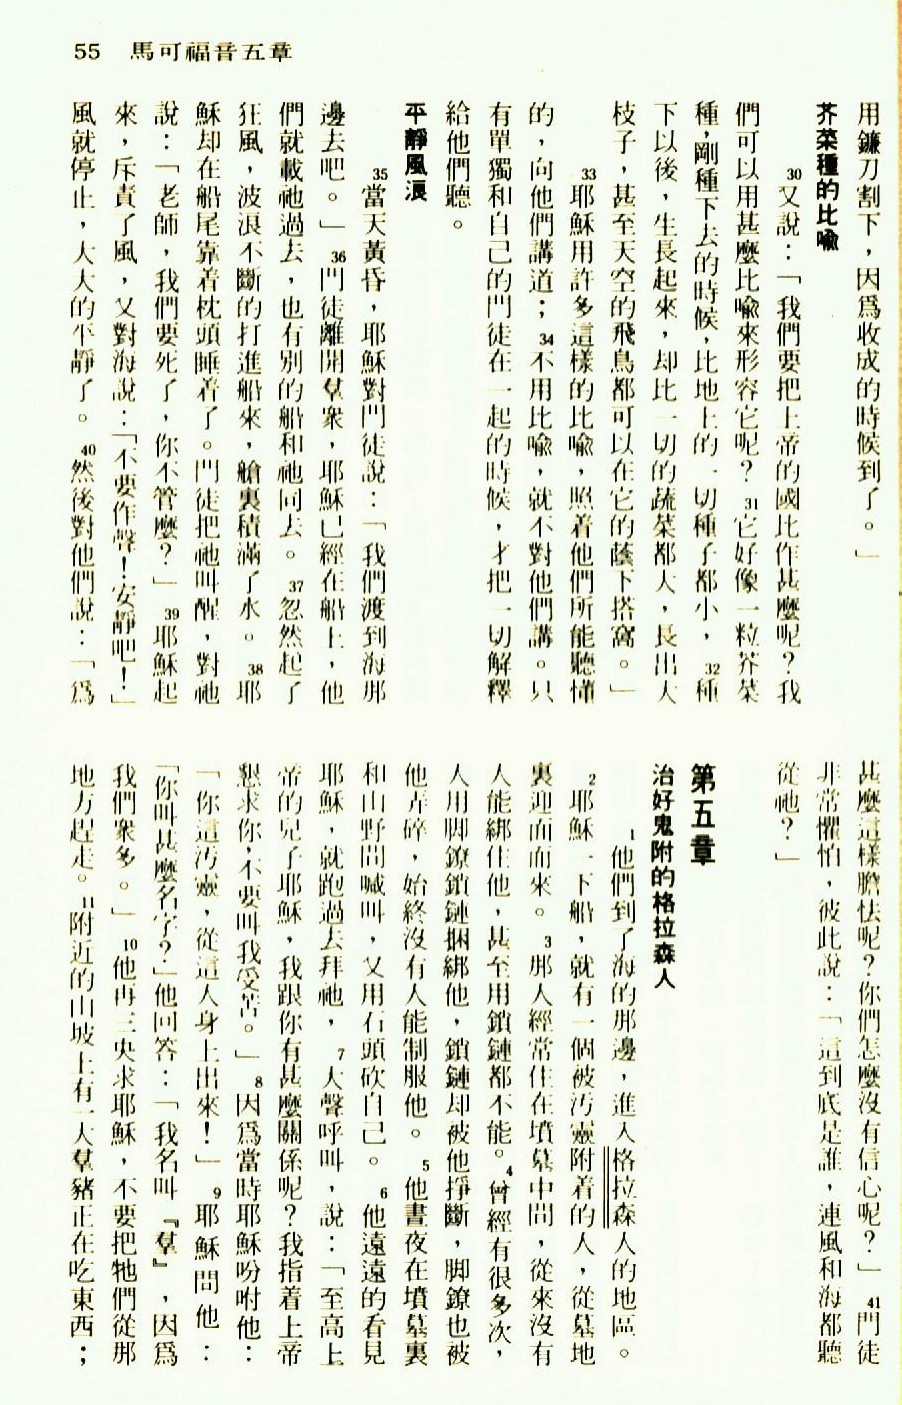 55 馬可福音五章
用鐮刀割下，因爲收成的時候到了。」
芥菜種的比喻
30又說：「我們要把上帝的國比作甚麼呢？我
們可以用甚麼比喻來形容它呢？31它好像一粒芥菜
種，剛種下去的時候，比地上的一切種子都小，32種
下以後，生長起來，却比一切的蔬菜都大，長出大
枝子，甚至天空的飛鳥都可以在它的蔭下搭窩。」
33耶穌用許多這樣的比喻，照着他們所能聽懂
的，向他們講道；34不用比喻，就不對他們講。只
有單獨和自己的門徒在一起的時候，才把一切解釋
給他們聽。
平靜風浪
35當天黃昏，耶穌對門徒說：「我們渡到海那
邊去吧。」36門徒離開羣衆，耶穌已經在船上，他
們就載祂過去，也有別的船和祂同去。37忽然起了
狂風，波浪不斷的打進船來，艙裏積滿了水。38耶
穌却在船尾靠着枕頭睡着了。門徒把祂叫醒，對祂
說：「老師，我們要死了，你不管麼？」39耶穌起
來，斥責了風，又對海說：「不要作聲！安靜吧！」
風就停止，大大的平靜了。40然後對他們說：「爲
甚麼這樣膽怯呢？你們怎麼沒有信心呢？」41門徒
非常懼怕，彼此說：「這到底是誰，連風和海都聽
從祂？」
第五章
治好鬼附的格拉森人
1他們到了海的那邊，進入格拉森人的地區。
2耶穌一下船，就有一個被污靈附着的人，從墓地
裏迎面而來。3那人經常住在墳墓中間，從來沒有
人能綁住他，甚至用鎖鏈都不能。4曾經有很多次，
人用脚鐐鎖鏈捆綁他，鎖鏈却被他掙斷，脚鐐也被
他弄碎，始終沒有人能制服他。5他晝夜在墳墓裏
和山野間喊叫，又用石頭砍自己。6他遠遠的看見
耶穌，就跑過去拜祂，7大聲呼叫，說：「至高上
帝的兒子耶穌，我跟你有甚麼關係呢？我指着上帝
懇求你，不要叫我受苦。」8因爲當時耶穌吩咐他：
「你這污靈，從這人身上出來！」9耶穌問他：
「你叫甚麼名字？」他回答：「我名叫『羣』，因爲
我們衆多。」10他再三央求耶穌，不要把牠們從那
地方趕走。11附近的山坡上有一大羣豬正在吃東西；